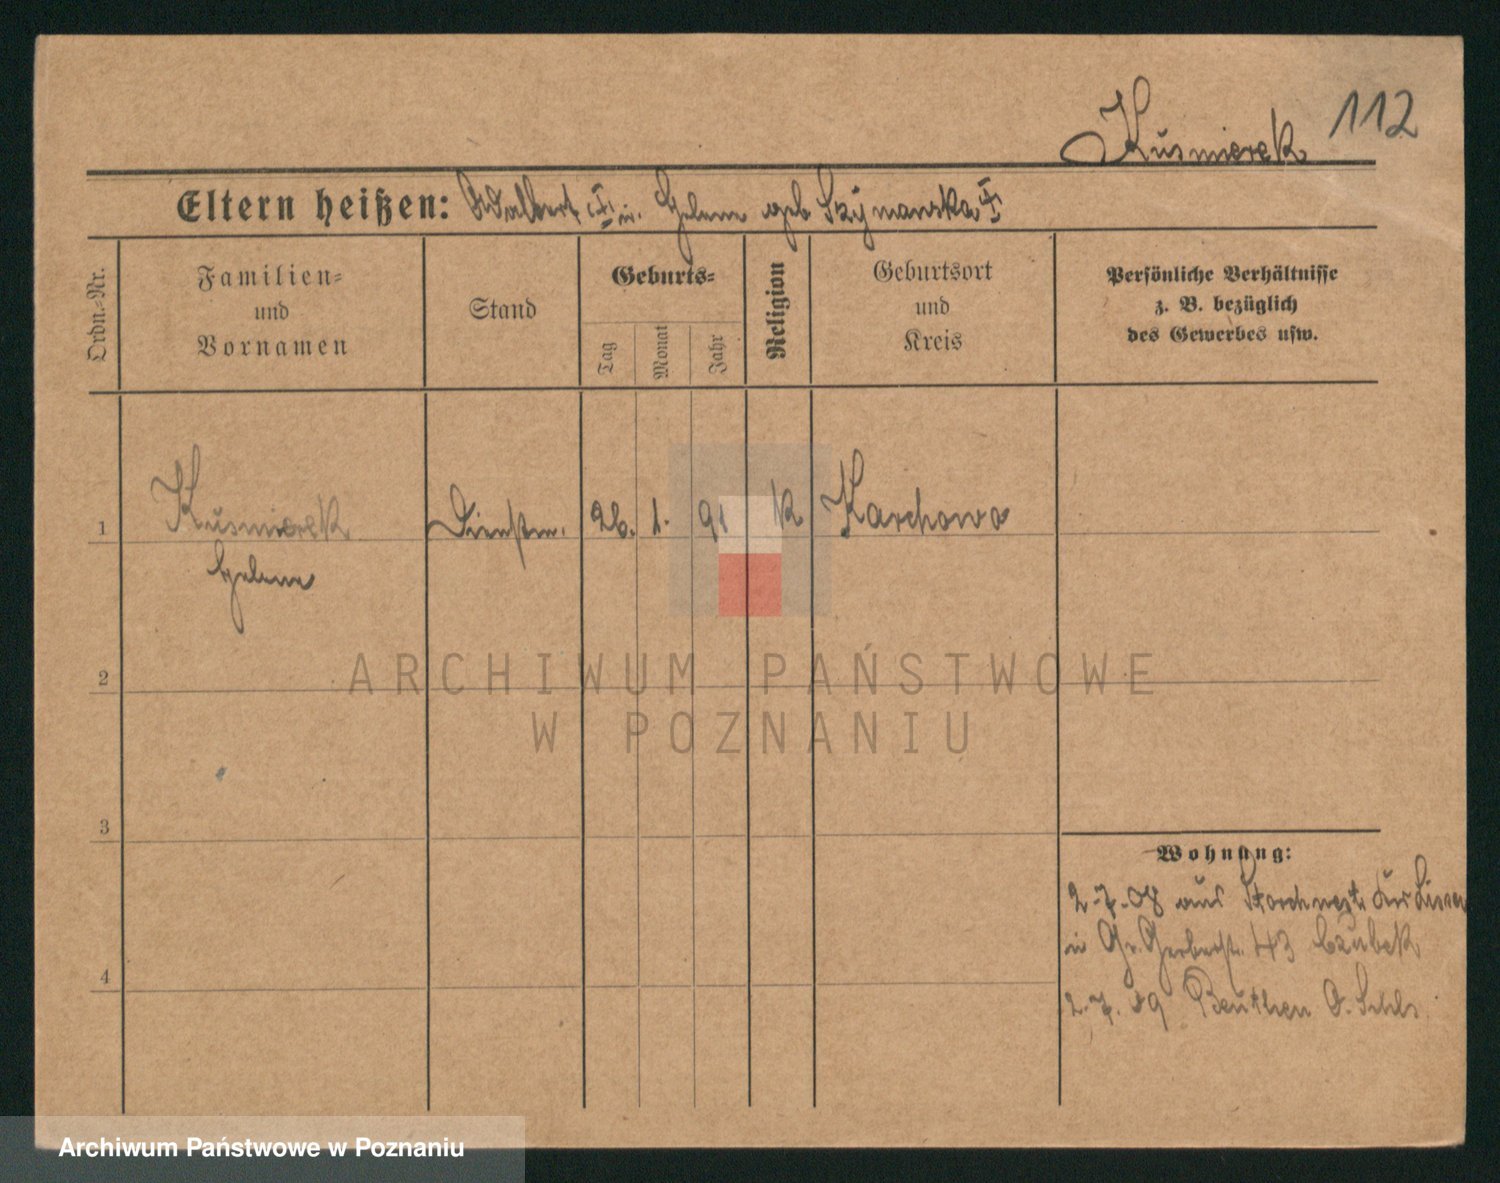 Kuśmierek 112
Eltern heißen: Adalbert u. Helene geb Szymanska
Ordn.-Nr.
Familien-
und
Vornamen
Stand
Geburts-
Tag
Monat
Jahr
Religion
Geburtsort
und
Kreis
Persönliche Verhältnisse
z. B. bezüglich
des Gewerbes usw.
1 Kuśmierek Dienstm. 26. 1. 91 K Karchowo
Helene
2
ARCHIWUM PAŃSTWOWE
W POZNANIU
3
Wohnung:
2.7.08 aus Storchnest Kr Lissa
in Gr. Gerberstr. 43 Czubek
4
2.7.09 Beuthen O. Schls
Archiwum Państwowe w Poznaniu